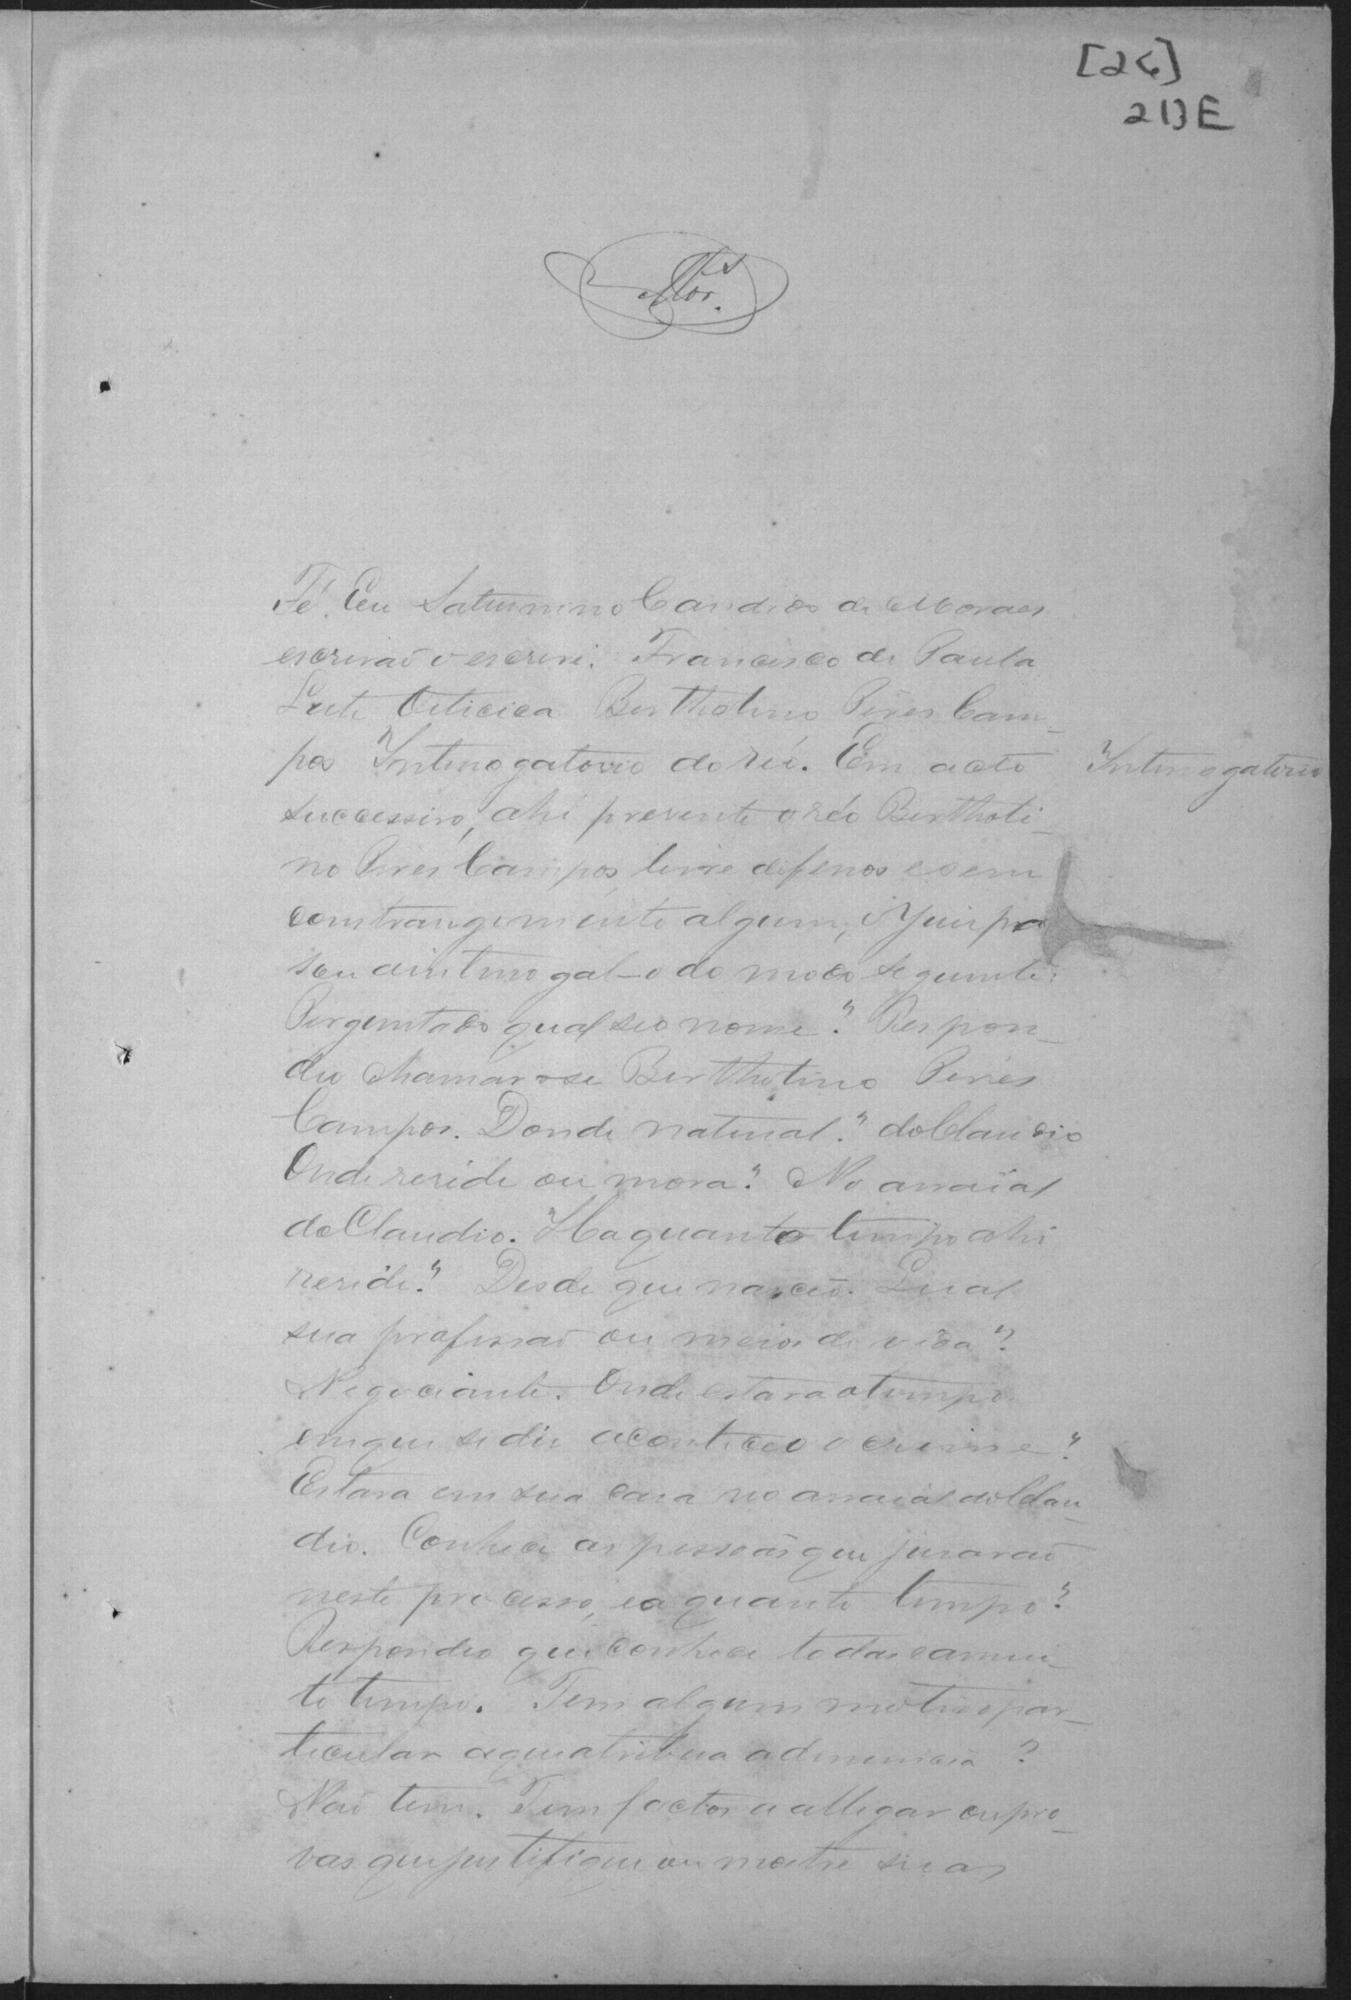 [26]
213E
Fé. Eu Saturnino Candido de Moraes
escrivaõ o escrevi. Francisco de Paula
Leite Oiticica Bertholino Pires Cam-
pos Interrogatorio do reú. Em acto
Interrogatorio
successivo, ahi presente o réo Bertholi-
no Pires Campos, livre de ferros e sem
constrangimento algum, o Juis pa
sou a interrogal-o do modo seguinte:
Perguntado qual seo nome? Respon-
deo chamar-se Bertholino Pires
Campos. Donde natural? do Claudio
Onde reside ou mora? No arraial
do Claudio. Ha quanto tempo ahi
reside? Desde que nasceo. Qual
sua profissaõ ou meios de vida?
Negociante. Onde estava o tempo
em que se diz aconteceo o crime?
Estava em sua casa no arraial do Clau-
dio. Conhece as pessoas que juraraõ
neste processo, e a quanto tempo?
Respondeo que conhece todas a mui-
to tempo. Tem algum motivo par-
ticular a que atribua a denuncia?
Naõ tem. Tem factos a allegar ou pro-
vas que justifique ou mostre sua